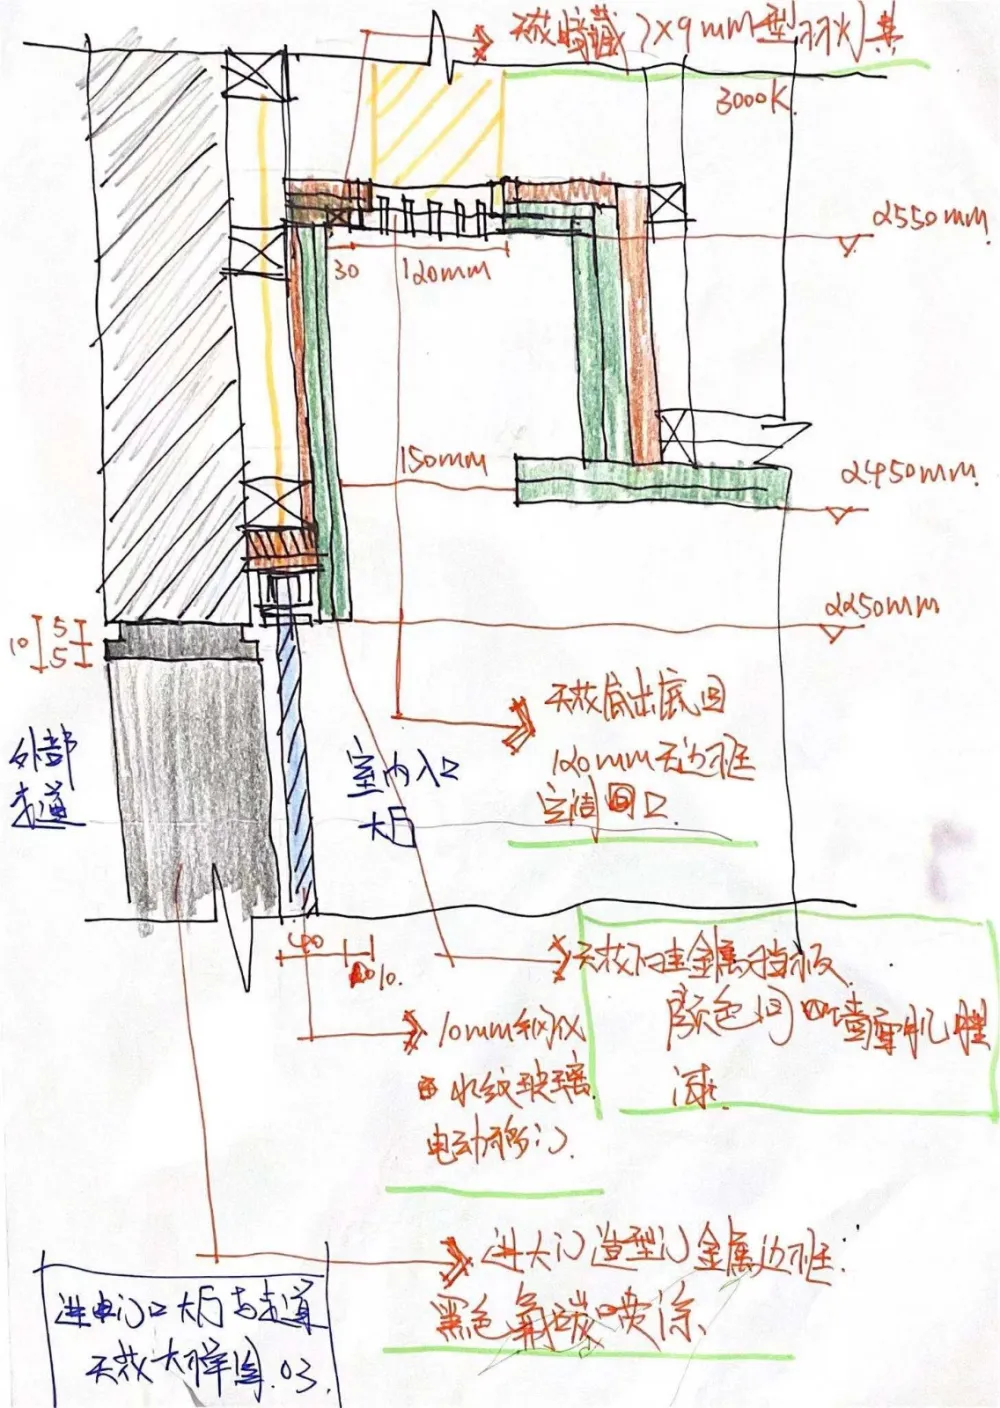 天花暗藏7×9mm型材灯具
3000K
2550mm
30
120mm
150mm
2450mm
2250mm
10
5
5
天花底出底回
120mm无边框
空调回口
外部
走道
室内入口
大厅
40
10.
天花下挂金属挡板
颜色同墙面肌理
漆.
10mm钢化
水纹玻璃
电动移门.
进大门造型门金属边框:
黑色氟碳喷涂
进电门口大厅与走道
天花大样图.03.